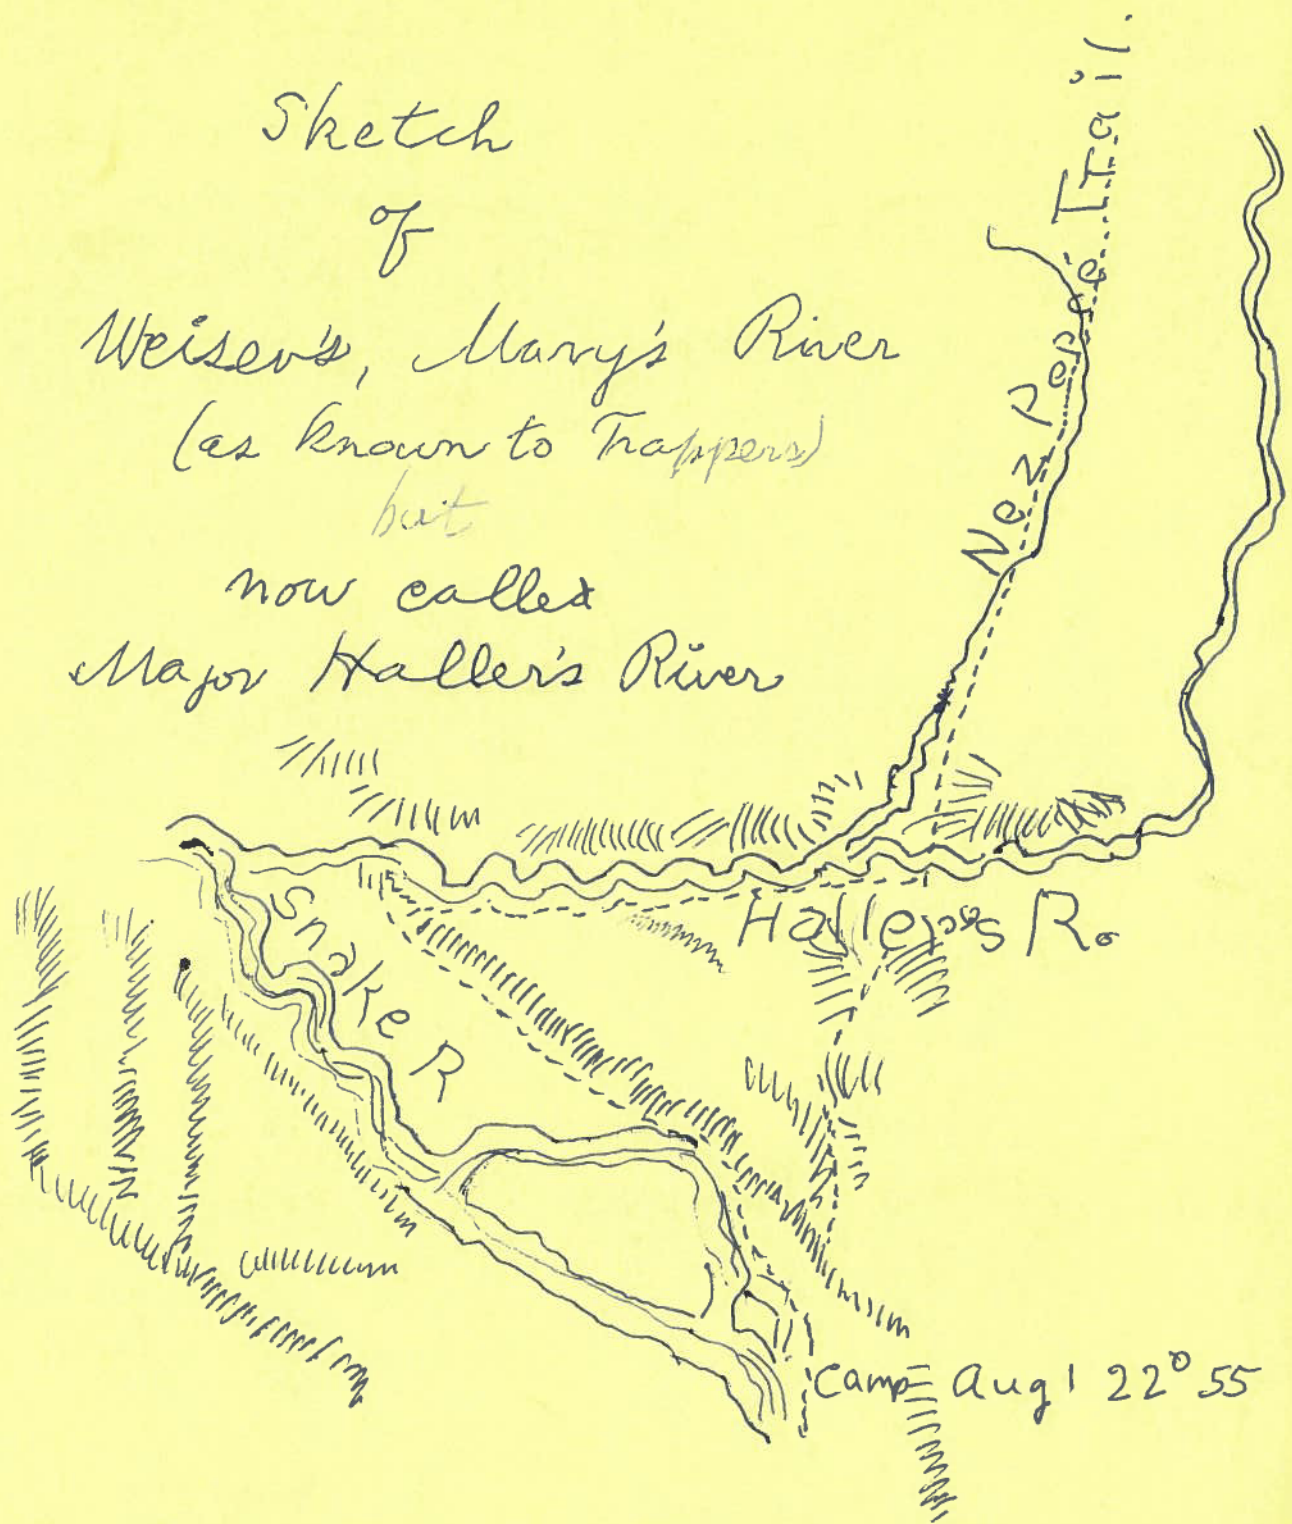 Sketch
of
Weiser's, Mary's River
(as known to Trappers)
but
now called
Major Haller's River
Nez Percé Trail.
Haller's R.
Snake R
Camp Aug 22° 55